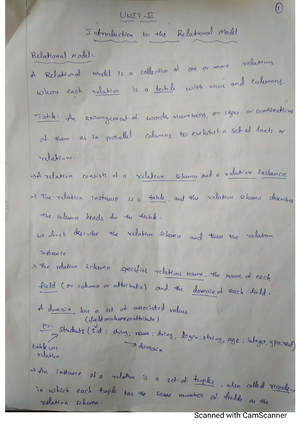 1
UNIT-II
Introduction to the Relational Model
Relational Model:-
A Relational model is a collection of one or more relations
where each relation is a table with rows and columns.
Table: An arrangement of words numbers, or signs or combinations
of them as in parallel columns to exhibit a set of facts or
relations.
→A relation consists of a relation schema and a relation instance
→ The relation instance is a table, and the relation schema describes
the column heads for the table.
we first describe the relation schema and then the relation
instance
→ The relation schema specifies relations name, the name of each
field (or column or attribute) and the domain of each field.
A domain has a set of associated values
(field/column/attribute)
Ex: Students (sid: string, name: string, login: string, age: integer, gpa: real)
table or
relation
→domain
→ An instance of a relation is a set of tuples, also called records
in which each tuple has the same number of fields as the
relation schema
Scanned with CamScanner